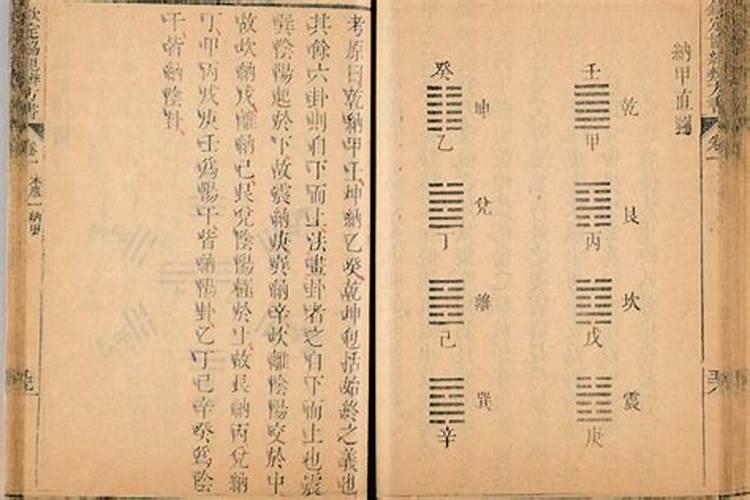 卷一
納甲直圖
壬
乾
甲
艮
丙
坎
戊
震
庚
癸
坤
乙
兌
丁
離
己
巽
辛
考原曰乾納甲壬坤納乙癸乾坤包括始終之義也
其餘六卦則自下而上法畫卦者之自下而上也震
巽陰陽起於下故震納庚巽納辛坎離陰陽交於中
故坎納戊離納己艮兌陰陽極於上故艮納丙兌納
丁甲丙戊庚壬爲陽干皆納陽卦乙丁己辛癸爲陰
干皆納陰卦
欽定協紀辨方書
卷一 本原一 納甲